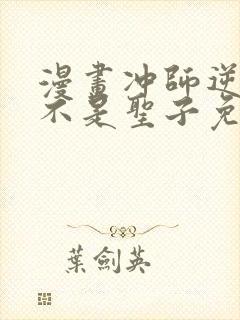 漫畫冲師逆
不是聖子免
葉劍英